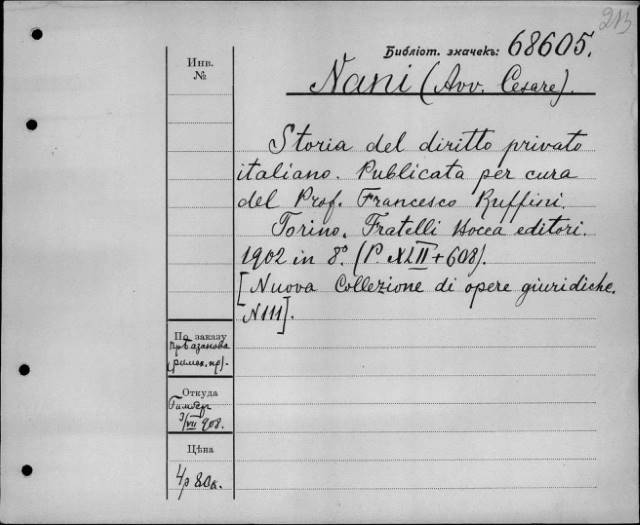 213
Библіот. значекъ: 68605.
Инв. №
Nani (Avv. Cesare).
Storia del diritto privato
italiano. Publicata per cura
del Prof. Francesco Ruffini.
Torino. Fratelli Bocca editori.
1902 in 8°. (P. XLII + 608).
[Nuova Collezione di opere giuridiche.
N 111].
По заказу
(римск. пр).
Откуда
3/VII 908.
Цѣна
4р 80к.